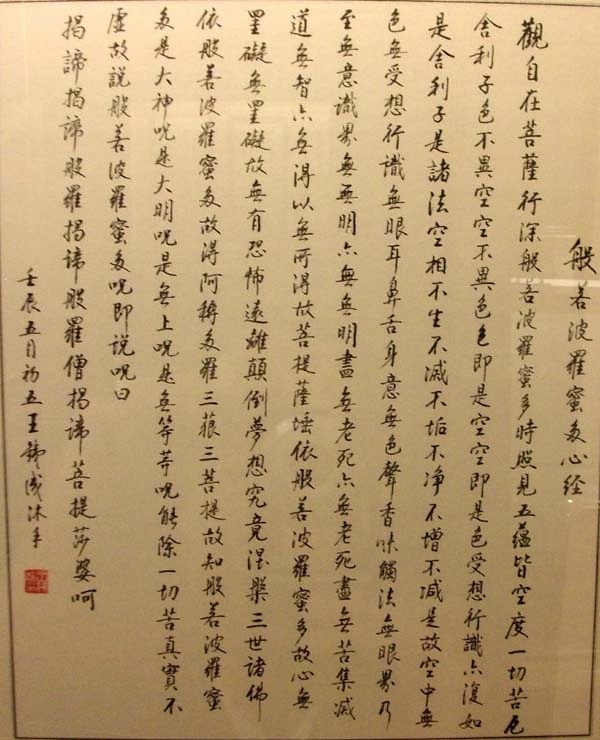 般若波羅蜜多心经
觀自在菩薩行深般若波羅蜜多時照見五蘊皆空度一切苦厄
舍利子色不異空空不異色色即是空空即是色受想行識亦復如
是舍利子是諸法空相不生不滅不垢不净不增不减是故空中無
色無受想行識無眼耳鼻舌身意無色聲香味觸法無眼界乃
至無意識界無無明亦無無明盡無老死亦無老死盡無苦集滅
道無智亦無得以無所得故菩提薩埵依般若波羅蜜多故心無
罣礙無罣礙故無有恐怖遠離顛倒夢想究竟涅槃三世諸佛
依般若波羅蜜多故得阿耨多羅三藐三菩提故知般若波羅蜜
多是大神呪是大明呪是無上呪是無等等呪能除一切苦真實不
虛故說般若波羅蜜多呪即說呪曰
揭諦揭諦般羅揭諦般羅僧揭諦菩提莎婆呵
壬辰五月初五王鐵成沐手